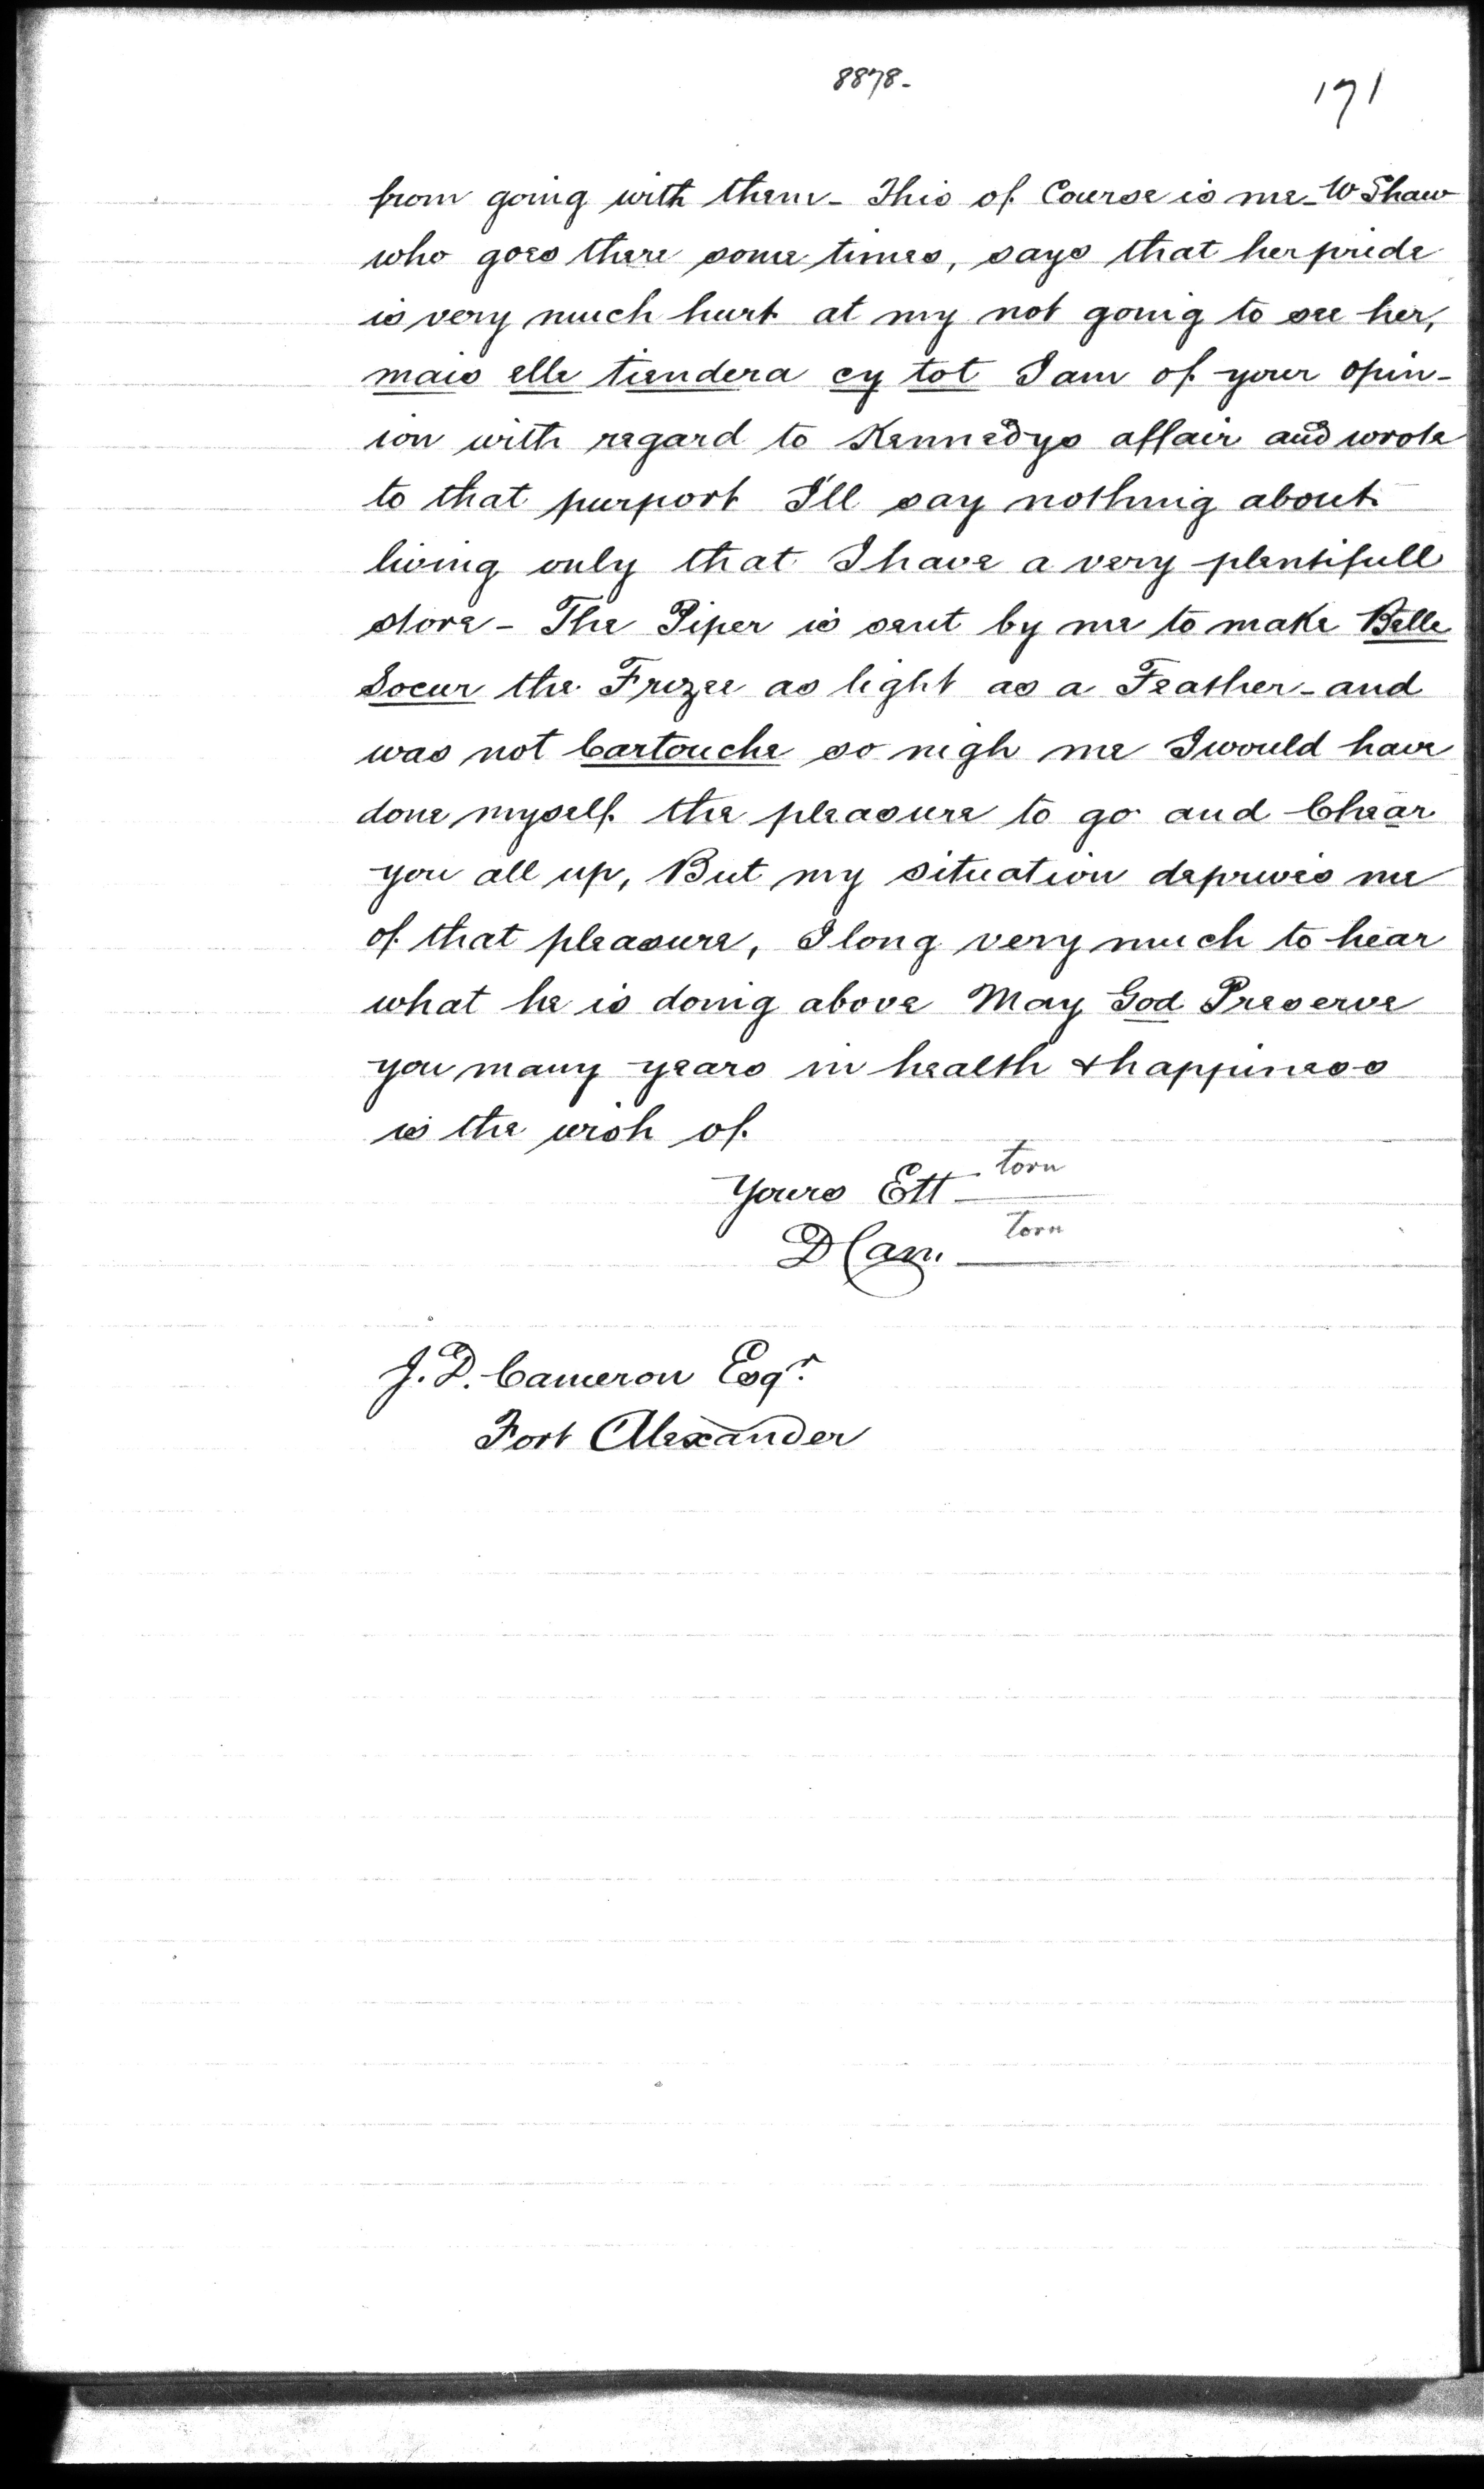 8878-
171
from going with them - This of Course is me - W Shaw
who goes there some times, says that her pride
is very much hurt at my not going to see her,
mais elle tiendera cy tot I am of your opin-
ion with regard to Kennedys affair and wrote
to that purport I'll say nothing about
living only that I have a very plentifull
store - The Piper is sent by me to make Belle
Soeur the Frizee as light as a Feather - and
was not Cartouche so nigh me I would have
done myself the pleasure to go and Chear
you all up, But my situation deprives me
of that pleasure, I long very much to hear
what he is doing above May God Preserve
you many years in health & happiness
is the wish of
Yours Ett torn
D Cam. torn
J. D. Cameron Esqr.
Fort Alexander